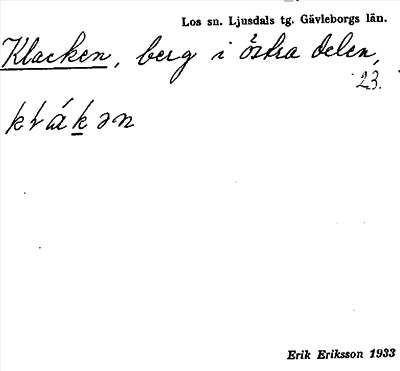 Los sn. Ljusdals tg. Gävleborgs län.
Klacken, berg i östra delen,
23.
Erik Eriksson 1933